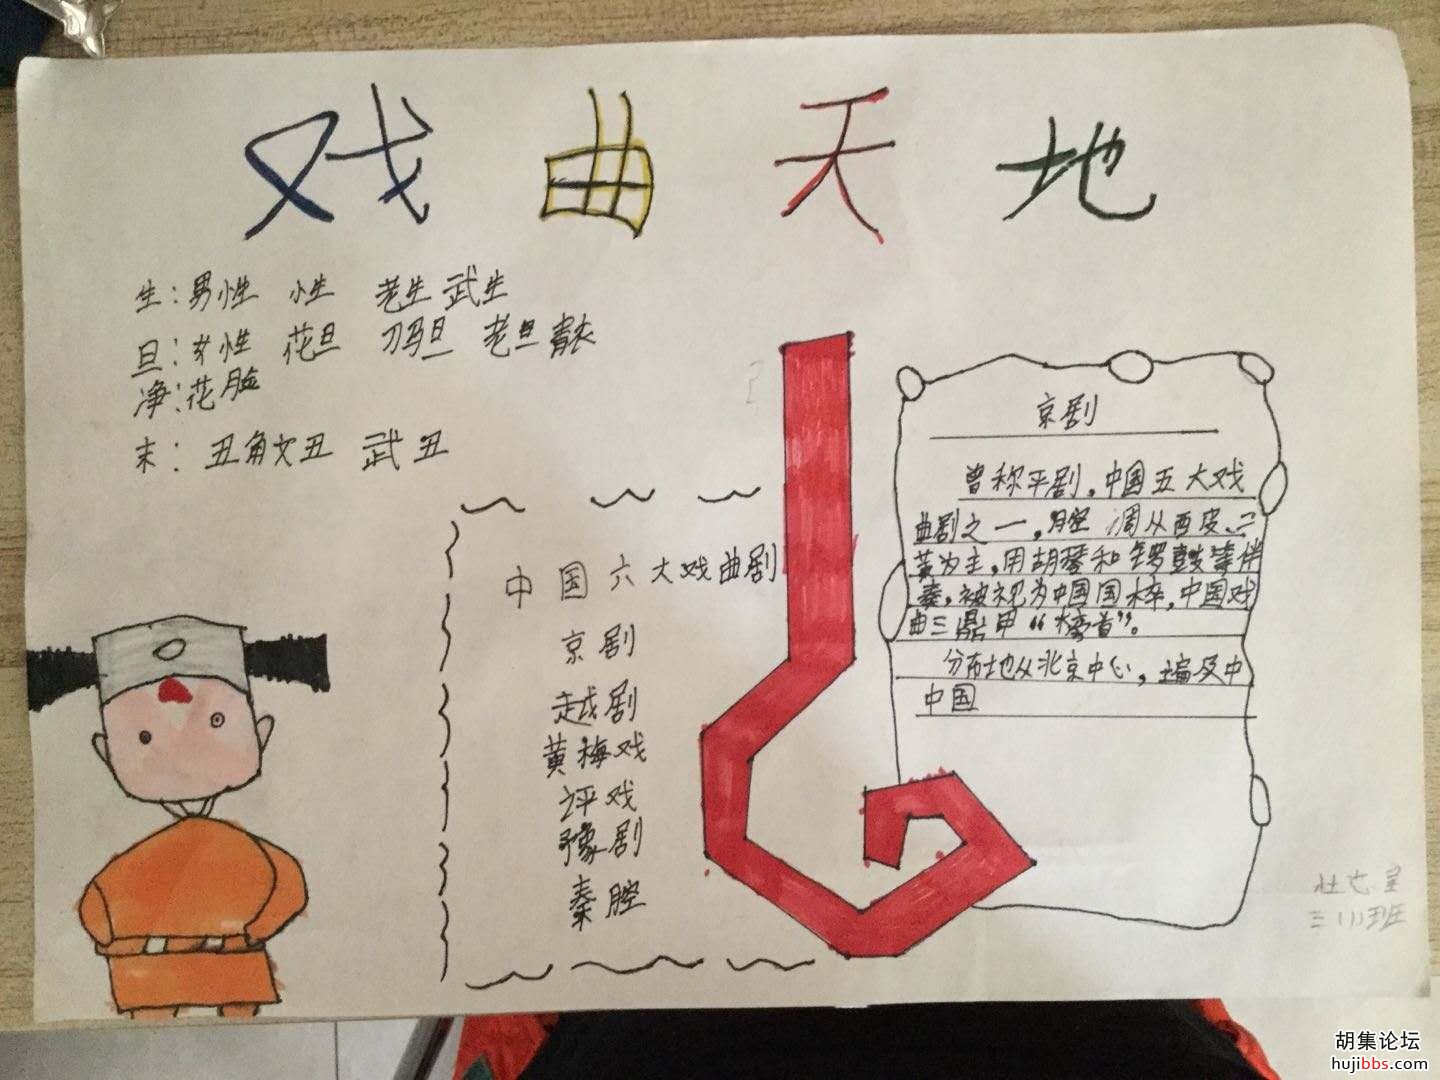 戏曲天地
生：男性 小性 老生 武生
旦：女性 花旦 刀马旦 老旦 青衣
净：花脸
末：丑角文丑 武丑
中国六大戏曲剧
京剧
越剧
黄梅戏
评戏
豫剧
秦腔
京剧
曾称平剧，中国五大戏
曲剧之一，腔调从西皮、二
黄为主，用胡琴和锣鼓等伴
奏，被视为中国国粹，中国戏
曲三鼎甲“榜首”。
分布地从北京中心，遍及中
中国
三(1)班
胡集论坛
hujibbs.com